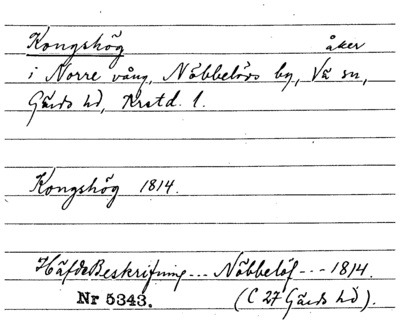 Kongshög åker
i Norre vång, Nöbbelövs by, Vä sn,
Gärds hd, Krstd. l.
Kongshög 1814.
HäfdeBeskrifning --- Nöbbelöf --- 1814.
Nr 5343. (C 27 Gärds hd).